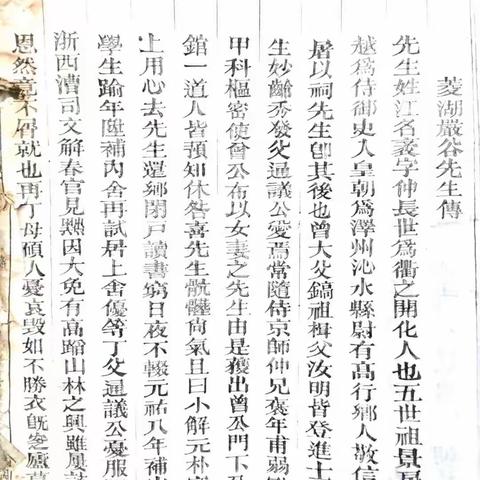 菱湖嚴谷先生傳
先生姓江名袤字仲長世爲衢之開化人也五世祖景房
越爲侍御史入皇朝爲澤州沁水縣尉有高行鄉人敬信
屠以祠先生卽其後也曾大父鎬祖楫父汝明皆登進士
生妙齡秀發父通議公愛焉常隨侍京師仲兄褒年甫弱
甲科樞密使曾公布以女妻之先生由是獲出曾公門下
舘一道人皆預知休咎喜先生骯髒尚氣且曰小解元朴
上用心去先生還鄉閉戸讀書窮日夜不輟元祐八年補
學生踰年陞補內舍再試居上舍優等丁父通議公憂服
浙西漕司文解春官見黜因大免有高蹈山林之興雖屢
恩然竟不屑就也再丁母碩人憂哀毀如不勝衣旣窆廬